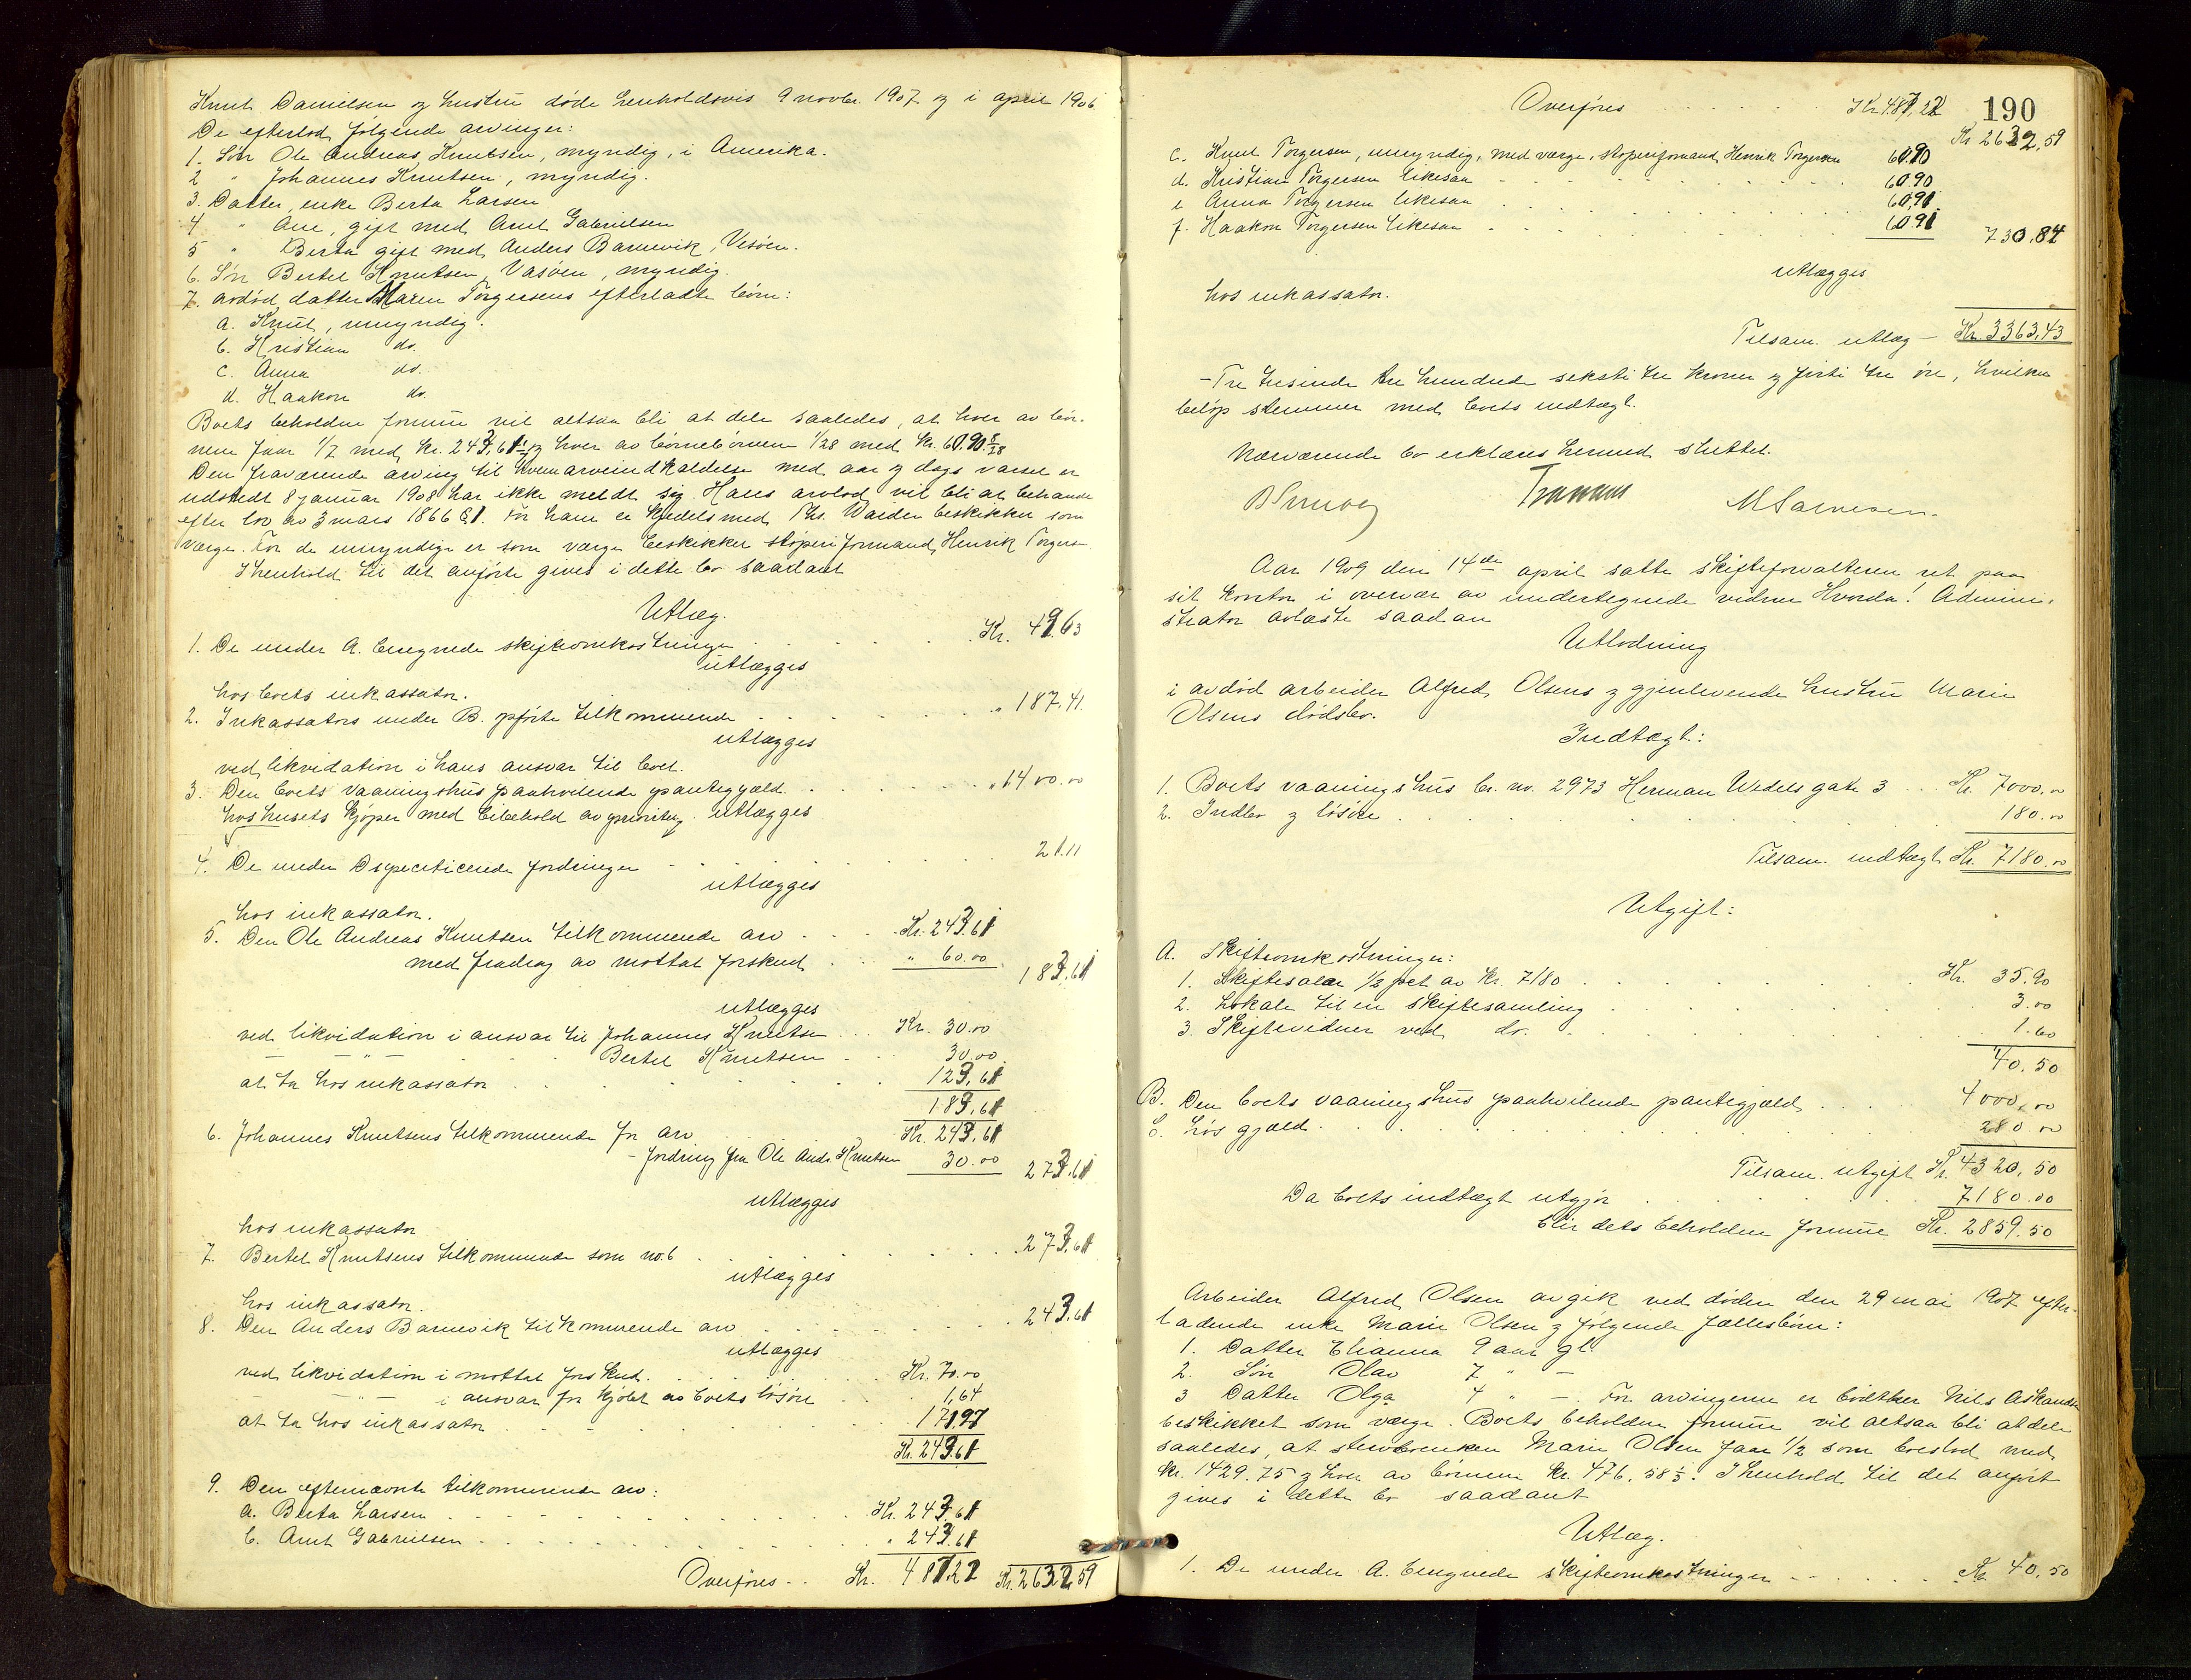 Knut Danielsen og hustru døde henholdsvis 9 novbr. 1907 og i april 1906
De efterlod følgende arvinger:
1. Søn Ole Andreas Knutsen, myndig, i Amerika.
2 " Johannes Knutsen, myndig.
3. Datter, enke Berta Larsen
4 " Ane, gift med Arnt Gabrielsen
5 " Berta gift med Anders Barnevik, Vasöen.
6. Søn Bertel Knutsen, Vasöen, myndig.
7. avdød datter Maren Torgersens efterladte børn:
a. Knut, umyndig.
b. Kristian do.
c. Anna do.
d. Haakon do.
Boets beholdne formue vil altsaa bli at dele saaledes, at hver av bør-
nene faar 1/7 med kr. 243,61 og hver av børnebørnene 1/28 med kr. 60.90
Den fraværende arving til hvem arveindkaldelse med aar og dags varsel er
udstedt 8 januar 1908 har ikke meldt sig. Hans arvlod vil bli at behandle
efter lov av 3 mars 1866 § 1. For ham er kjedelsmed Ths. Warden beskikket som
værge. For de umyndige er som værge beskikket støperiformand Henrik Torgersen
I henhold til det anførte gives i dette bo saadant
Utlæg.
1. De under A. beregnede skifteomkostninger . . . Kr. 49.63
utlægges
hos boets inkassator.
2. Inkassators under B. opførte tilkommende . . . " 187.41.
utlægges
ved likvidation i hans ansvar til boet.
3. Den boets vaaningshus paahvilende pantegjæld. . . . " 1400.00
hos husets kjøper med bibehold av prioritet utlægges
4. De under D specificerede fordringer . . . 21.11
utlægges
hos inkassator.
5. Den Ole Andreas Knutsen tilkommende arv . . . Kr. 243.61
med fradrag av mottat forskud . . . " 60.00 183.61
utlægges
ved likvidation i ansvar til Johannes Knutsen . . . Kr. 30.00
— " — Bertel Knutsen . . . 30.00
at ta hos inkassator . . . 123.61
183.61
6. Johannes Knutsens tilkommende for arv . . . Kr. 243.61
- fordring fra Ole Andr. Knutsen 30.00 273.61
utlægges
hos inkassator
7. Bertel Knutsens tilkommende som no. 6 . . . 273.61
utlægges
hos inkassator.
8. Den Anders Barnevik tilkommende arv . . . 243.61
utlægges
ved likvidation i mottat forskud. . . . Kr. 70.00
— " — i ansvar for kjøbt av boets løsøre . . . 1,64
at ta hos inkassator . . . 171.97
Kr. 243.61
9. Den efternævnte tilkommende arv:
a. Berta Larsen . . . Kr. 243.61
b. Arnt Gabrielsen . . . " 243.61
Overføres . . Kr. 487.22 Kr. 2632,59
190
Overføres . . . Kr. 487,22 Kr. 2632,59
c. Knut Torgersen, umyndig, med værge, støperiformand Henrik Torgersen 60.90
d. Kristian Torgersen likesaa . . . 60.90
e Anna Torgersen likesaa . . . 60,91
f. Haakon Torgersen likesaa . . . 60.91 730,84
utlægges
hos inkassator.
Tilsam. utlæg — Kr. 3363,43
- Tre tusinde tre hundrede seksti tre kroner og førti tre øre, hvilke
beløp stemmer med boets indtægt.
Nærværende bo erklæres hermed sluttet.
M Salvesen.
Aar 1909 den 14de april satte skifteforvalteren ret paa
sit kontor i overvær av undertegnede vidner. Hvorda! Admini-
strator avlæste saadan
Utlodning
i avdød arbeider Alfred Olsens og gjenlevende hustru Marie
Olsens dødsbo.
Indtægt:
1. Boets vaaningshus br. no. 2973 Herman Wedels gate 3 . . . Kr. 7000.00
2. Indbo og løsøre . . . 180.00
Tilsam. indtægt Kr. 7180.00
Utgift:
A. Skifteomkostninger:
1. Skiftesalær 1/2 pct av kr. 7180 . . . Kr. 35.90
2. Lokale til en skiftesamling . . . 3.00
3. Skiftevidner ved do. . . . 1.60
40.50
B. Den boets vaaningshus paahvilende pantegjæld . . . 4000.00
C. Løs gjæld . . . 280.00
Tilsam. utgift Kr. 4320,50
Da boets indtægt utgjør . . . 7180.00
blir dets beholdne formue Kr. 2859.50
Arbeider Alfred Olsen avgik ved døden den 29 mai 1907 efter-
ladende enke Marie Olsen og følgende fællesbørn:
1. Datter Elianna 9 aar gl.
2. Søn Olav 7 " —
3 Datter Olga 4 " — . For arvingerne er bødtker Nils Askeandsen
beskikket som værge. Boets beholdne formue vil altsaa bli at dele
saaledes, at stervboenken Marie Olsen faar 1/2 som boeslod med
kr. 1429.75 og hver av børnene kr. 476.58 1/3. I henhold til det anført
gives i dette bo saadant
Utlæg.
1. De under A. beregnede skifteomkostninger . . . Kr. 40.50